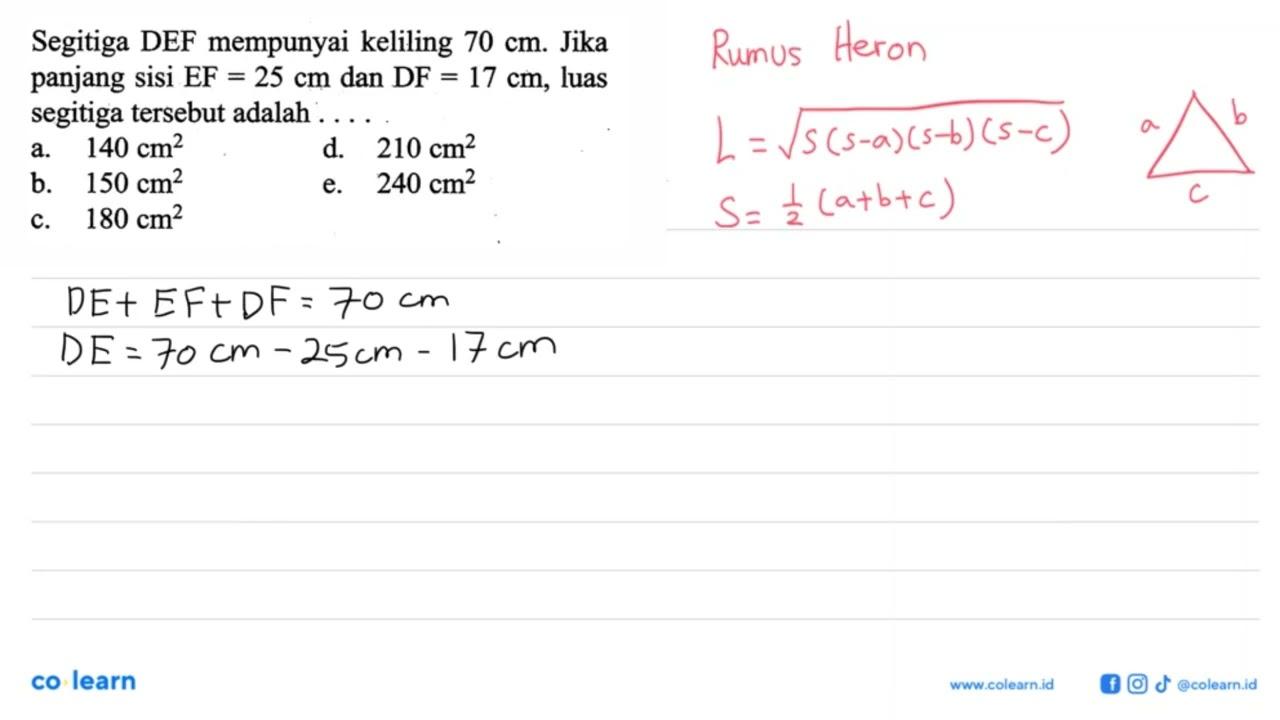 Segitiga DEF mempunyai keliling 70 cm. Jika
panjang sisi EF = 25 cm dan DF = 17 cm, luas
segitiga tersebut adalah . . . .
a. 140 cm² d. 210 cm²
b. 150 cm² e. 240 cm²
c. 180 cm²
Rumus Heron
L = √s(s-a)(s-b)(s-c)
S = 1/2 (a+b+c)
a b
c
DE + EF + DF = 70 cm
DE = 70 cm - 25 cm - 17 cm
co learn
www.colearn.id @colearn.id